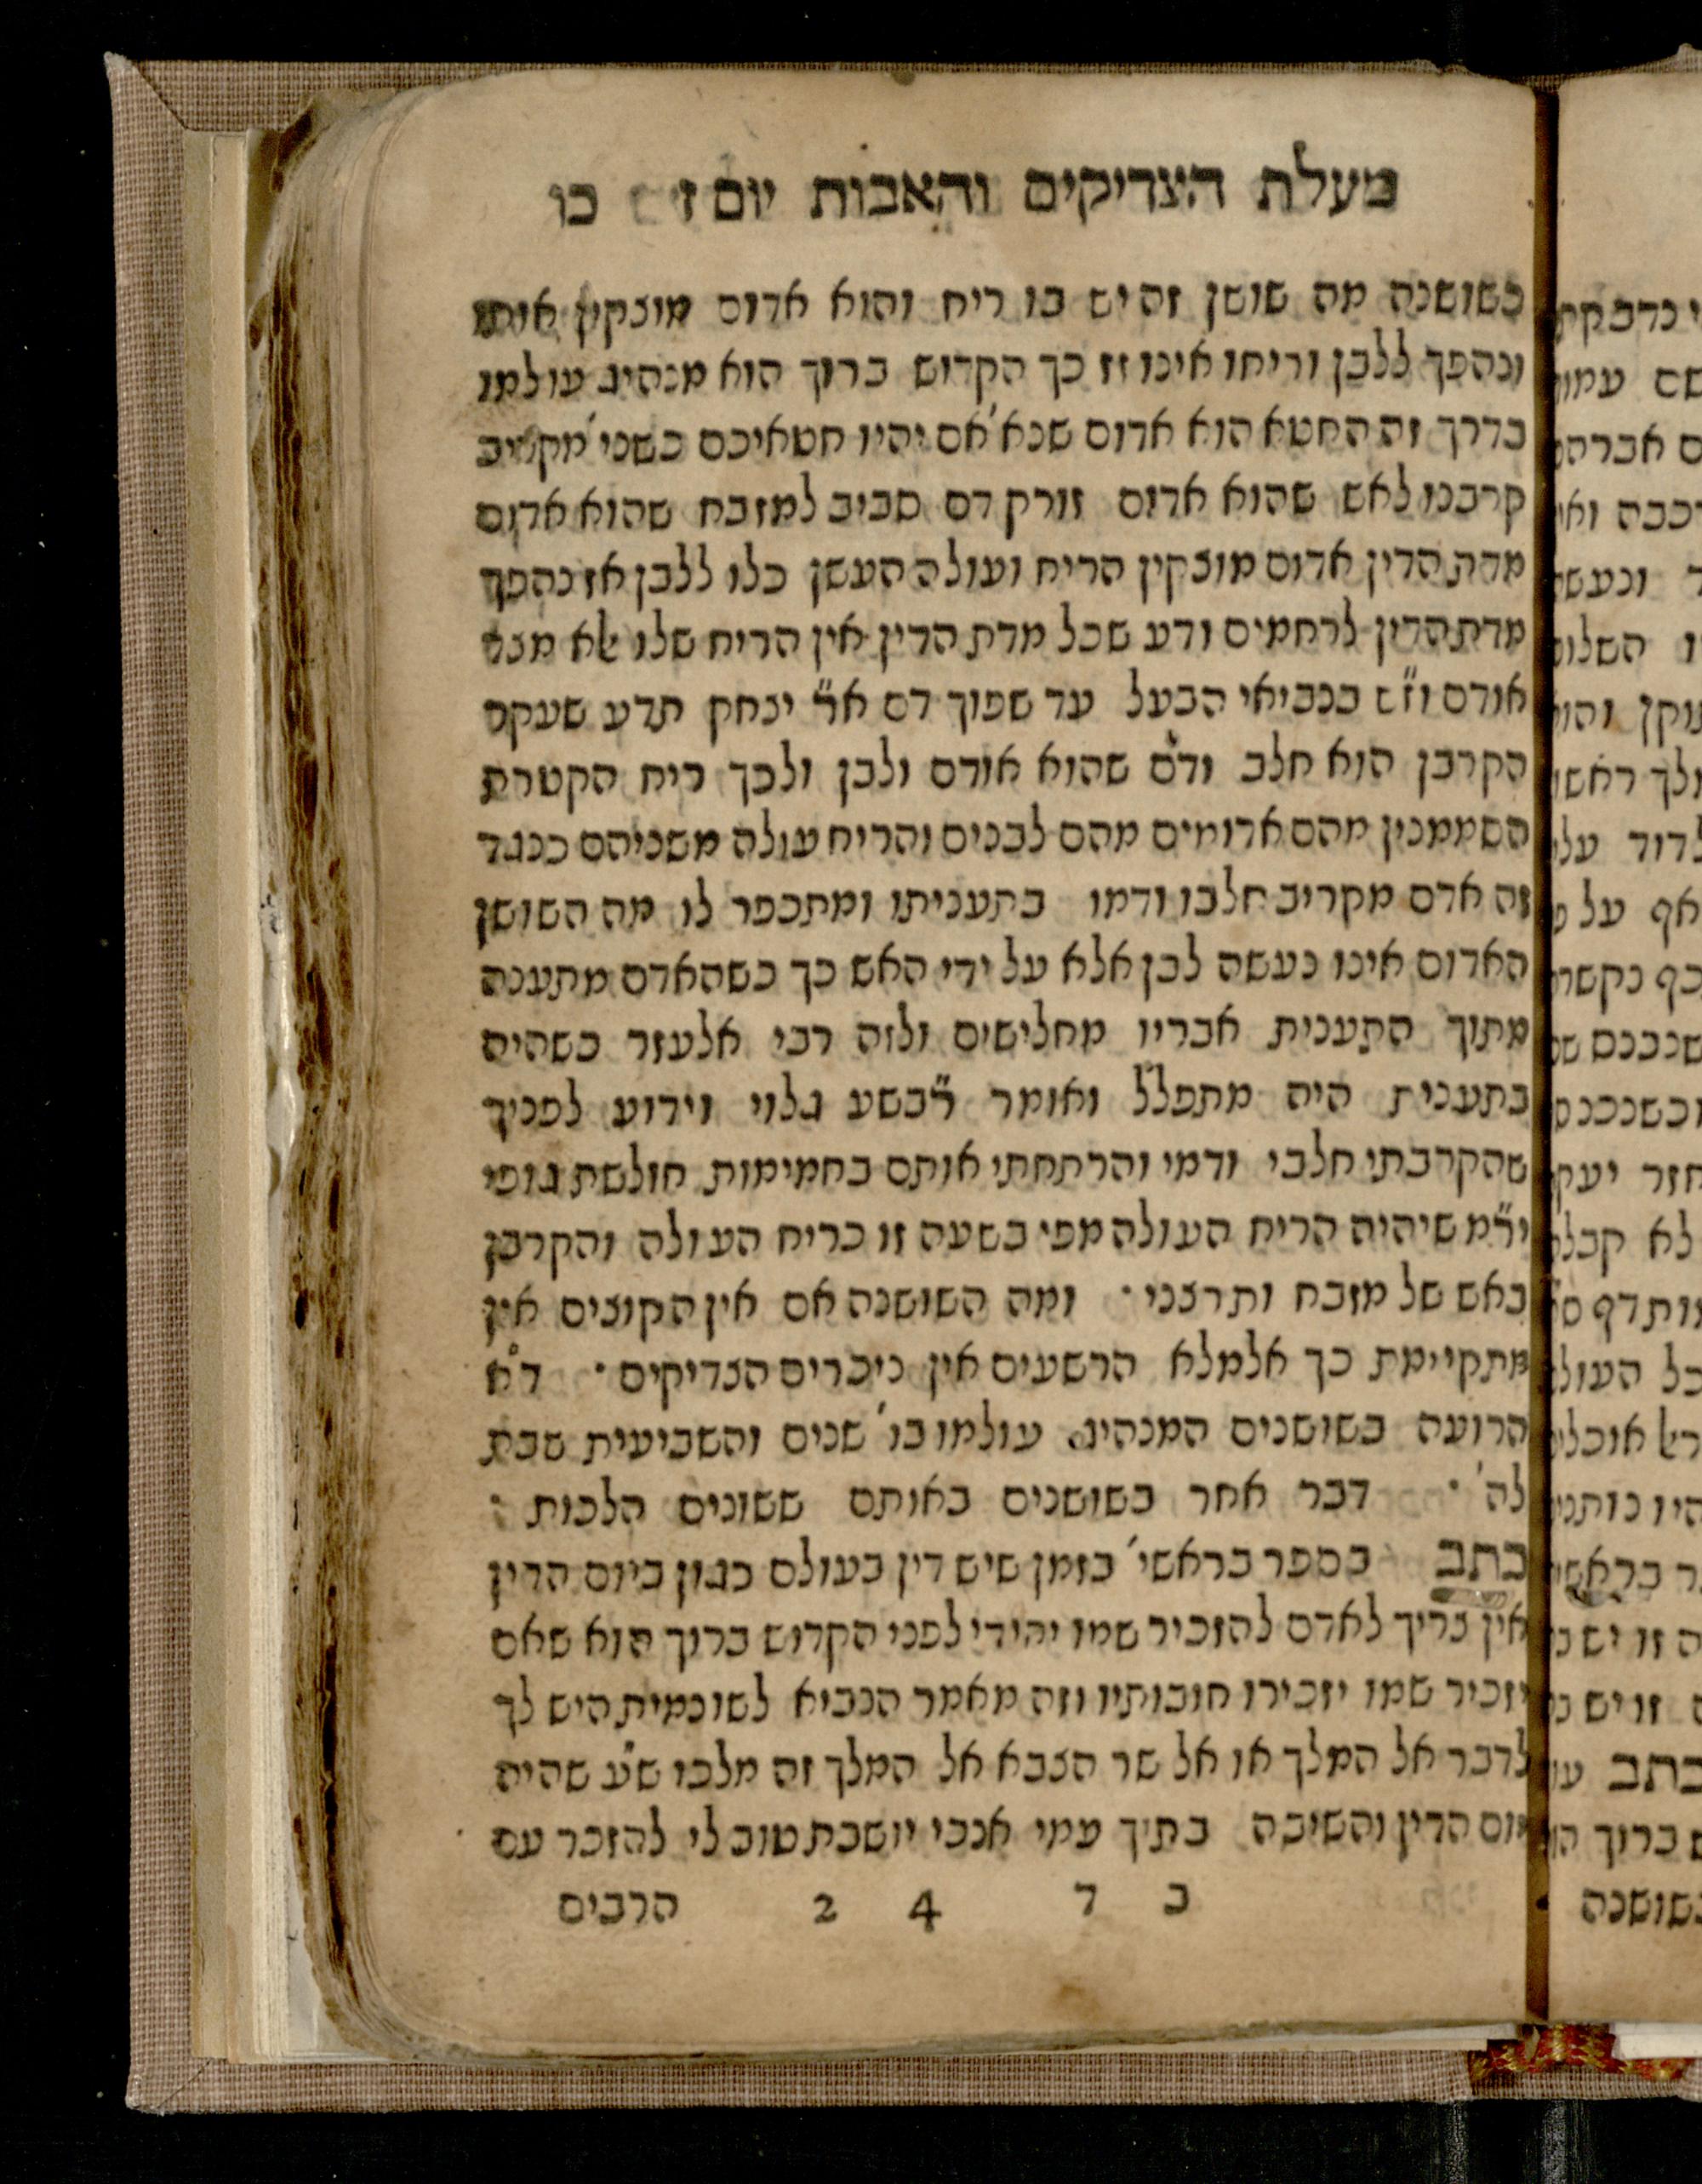 מעלת הצדיקים והאבות יום ז כו
כשושנה מה שושן זה יש בו ריח והוא אדום מוצקין אותו
ונהפך ללבן וריחו אינו זז כך הקדוש ברוך הוא מנהיג עולמו
בדרך זה החטא הוא אדום שנא' אם יהיו חטאיכם כשני' מקריב
קרבנו לאש שהוא אדום זורק דם סביב למזבח שהוא אדום
מדת הדין אדום מוצקין הריח ועולה העשן כלו ללבן אז נהפך
מדת הדין לרחמים ודע שכל מדת הדין אין הריח שלו אלא מבא
אודם וז"ש בנביאי הבעל עד שפוך דם א"ר יצחק תדע שעקר
הקרבן הוא חלב ודם שהוא אודם ולבן ולכך ריח הקטרת
הסממנין מהם אדומים מהם לבנים והריח עולה משניהם כנגד
זה אדם מקריב חלבו ודמו בתעניתו ומתכפר לו מה השושן
האדום אינו נעשה לבן אלא על ידי האש כך כשהאדם מתענה
מתוך התענית אבריו מחלישים ולזה רבי אלעזר כשהיה
בתענית היה מתפלל ואומר רבש"ע גלוי וידוע לפניך
שהקרבתי חלבי ודמי והרתחתי אותם בחמימות חולשת גופי
יר"מ שיהיה הריח העולה מפי בשעה זו כריח העולה והקרבן
באש של מזבח ותרצני · ומה השושנה אם אין הקוצים אין
מתקיימת כך אלמלא הרשעים אין ניכרים הצדיקים · ד"א
הרועה בשושנים המנהיג עולמו בו' שנים והשביעית שבת
לה' · דבר אחר בשושנים באותם ששונים הלכות :
כתב בספר בראשי' בזמן שיש דין בעולם כגון ביום הדין
אין צריך לאדם להזכיר שמו יהידי לפני הקדוש ברוך הוא שאם
יזכיר שמו יזכירו חובותיו וזה מאמר הנביא לשונמית היש לך
לדבר אל המלך או אל שר הצבא אל המלך זה מלכו ש"ע שהיה
יום הדין והשיבה בתוך עמי אנכי יושבת טוב לי להזכר עם
כ ד 4 2 הרבים